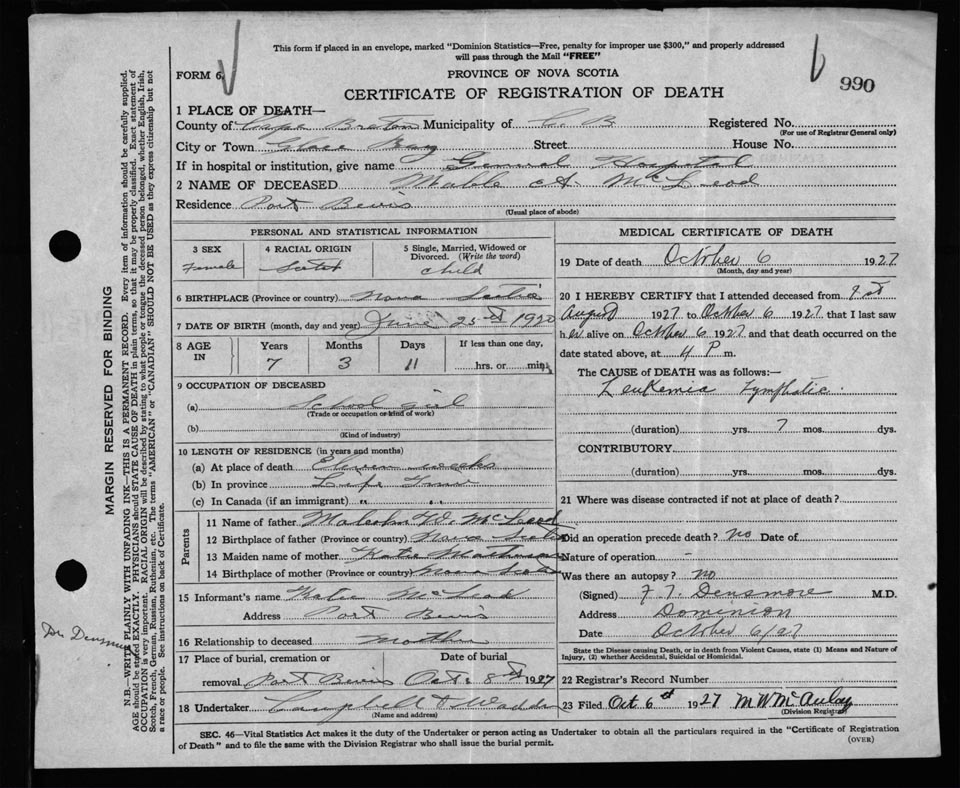 This form if placed in an envelope, marked "Dominion Statistics—Free, penalty for improper use $300," and properly addressed
will pass through the Mail "FREE"
FORM 6.
PROVINCE OF NOVA SCOTIA
990
CERTIFICATE OF REGISTRATION OF DEATH
1 PLACE OF DEATH—
County of Cape Breton Municipality of C. B Registered No.
(For use of Registrar General only)
City or Town Glace Bay Street House No.
If in hospital or institution, give name General Hospital
2 NAME OF DECEASED Mable A. McLeod
Residence Port Bevis
(Usual place of abode)
PERSONAL AND STATISTICAL INFORMATION
3 SEX 4 RACIAL ORIGIN 5 Single, Married, Widowed or Divorced. (Write the word)
Female Scotch child
6 BIRTHPLACE (Province or country) Nova Scotia
7 DATE OF BIRTH (month, day and year) June 25th 1920
8 AGE IN Years Months Days If less than one day,
7 3 11 hrs. or mins
9 OCCUPATION OF DECEASED
(a) School girl
(Trade or occupation or kind of work)
(b)
(Kind of industry)
10 LENGTH OF RESIDENCE (in years and months)
(a) At place of death Eleven weeks
(b) In province Life Time
(c) In Canada (if an immigrant) " "
Parents
11 Name of father Malcolm W. McLeod
12 Birthplace of father (Province or country) Nova Scotia
13 Maiden name of mother Katie Matheson
14 Birthplace of mother (Province or country) Nova Scotia
15 Informant's name Katie McLeod
Address Port Bevis
16 Relationship to deceased Mother
17 Place of burial, cremation or Date of burial
removal Port Bevis Oct. 8th 1927
18 Undertaker Campbell & Wadden
(Name and address)
MEDICAL CERTIFICATE OF DEATH
19 Date of death October 6 1927
(Month, day and year)
20 I HEREBY CERTIFY that I attended deceased from
August 1927 to October 6 1927 that I last saw
her alive on October 6 1927 and that death occurred on the
date stated above, at 4 P m.
The CAUSE of DEATH was as follows:—
Leukemia Lymphatic.
(duration) yrs. 7 mos. dys.
CONTRIBUTORY.
(duration) yrs. mos. dys.
21 Where was disease contracted if not at place of death?
Did an operation precede death? no Date of
Nature of operation -
Was there an autopsy? no
(Signed) F. T. Densmore M.D.
Address Dominion
Date October 6/27
State the Disease causing Death, or in death from Violent Causes, state (1) Means and Nature of
Injury, (2) whether Accidental, Suicidal or Homicidal.
22 Registrar's Record Number
23 Filed Oct 6th 1927 M W McAulay
(Division Registrar)
SEC. 46—Vital Statistics Act makes it the duty of the Undertaker or person acting as Undertaker to obtain all the particulars required in the "Certificate of Registration
of Death" and to file the same with the Division Registrar who shall issue the burial permit.
(OVER)
MARGIN RESERVED FOR BINDING
N.B.—WRITE PLAINLY WITH UNFADING INK—THIS IS A PERMANENT RECORD. Every item of information should be carefully supplied.
AGE should be stated EXACTLY. PHYSICIANS should STATE CAUSE OF DEATH in plain terms, so that it may be properly classified. Exact statement of
OCCUPATION is very important. RACIAL ORIGIN will be described by stating to what people or tongue the deceased person belonged, whether English, Irish,
Scotch, French, German, Russian, Ruthenian, etc. The terms "AMERICAN" or "CANADIAN" SHOULD NOT BE USED as they express citizenship but not
a race or people. See instructions on back of Certificate.
Dr Densmore